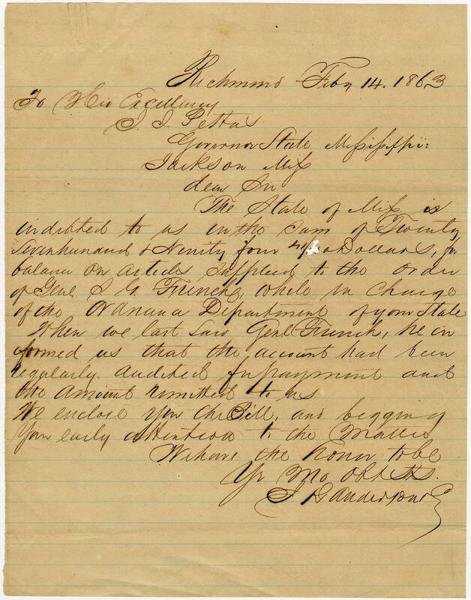 Richmond Feby 14. 1863
To His Excellency
J. J. Pettus
Governor State Mississippi
Jackson Miss
dear Sir
The State of Miss is
indebted to us in the Sum of Twenty
Sevenhundred & Ninety four Dollars, for
balance on articles Supplied to the order
of Genl S. G. French, while in Charge
of the Ordnance Department of your State
When we last saw Genl French, he in
formed us that the account had been
regularly audited for payment and
the amount remitted to us
We enclose you the Bill, and begging
your early attention to the Matter
We have the honor to be
Yr Mo Obt Sts.